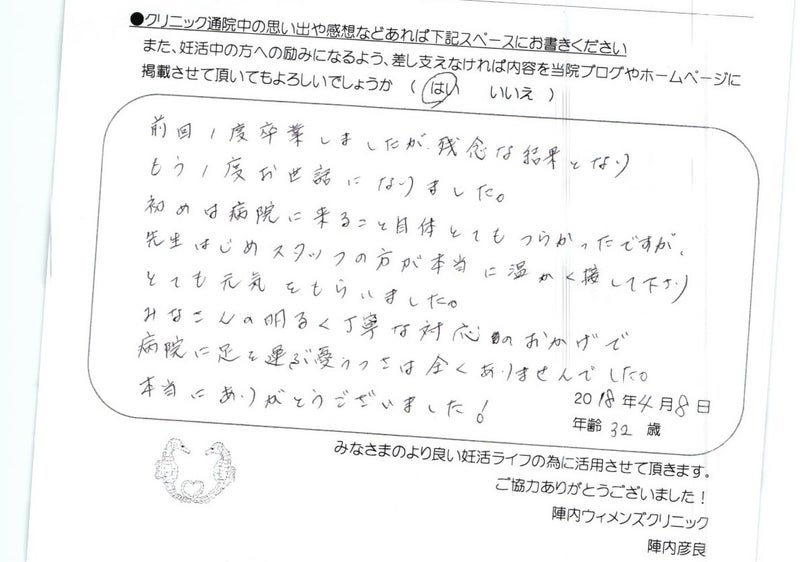 ●クリニック通院中の思い出や感想などあれば下記スペースにお書きください
また、妊活中の方への励みになるよう、差し支えなければ内容を当院ブログやホームページに
掲載させて頂いてもよろしいでしょうか （ はい いいえ ）
前回1度卒業しましたが、残念な結果となり
もう1度お世話になりました。
初めは病院に来ること自体とてもつらかったですが、
先生はじめスタッフの方が本当に温かく接して下さり
とても元気をもらいました。
みなさんの明るく丁寧な対応のおかげで
病院に足を運ぶ憂うつさは全くありませんでした。
本当にありがとうございました!
2018年4月8日
年齢 32 歳
みなさまのより良い妊活ライフの為に活用させて頂きます。
ご協力ありがとうございました！
陣内ウィメンズクリニック
陣内彦良